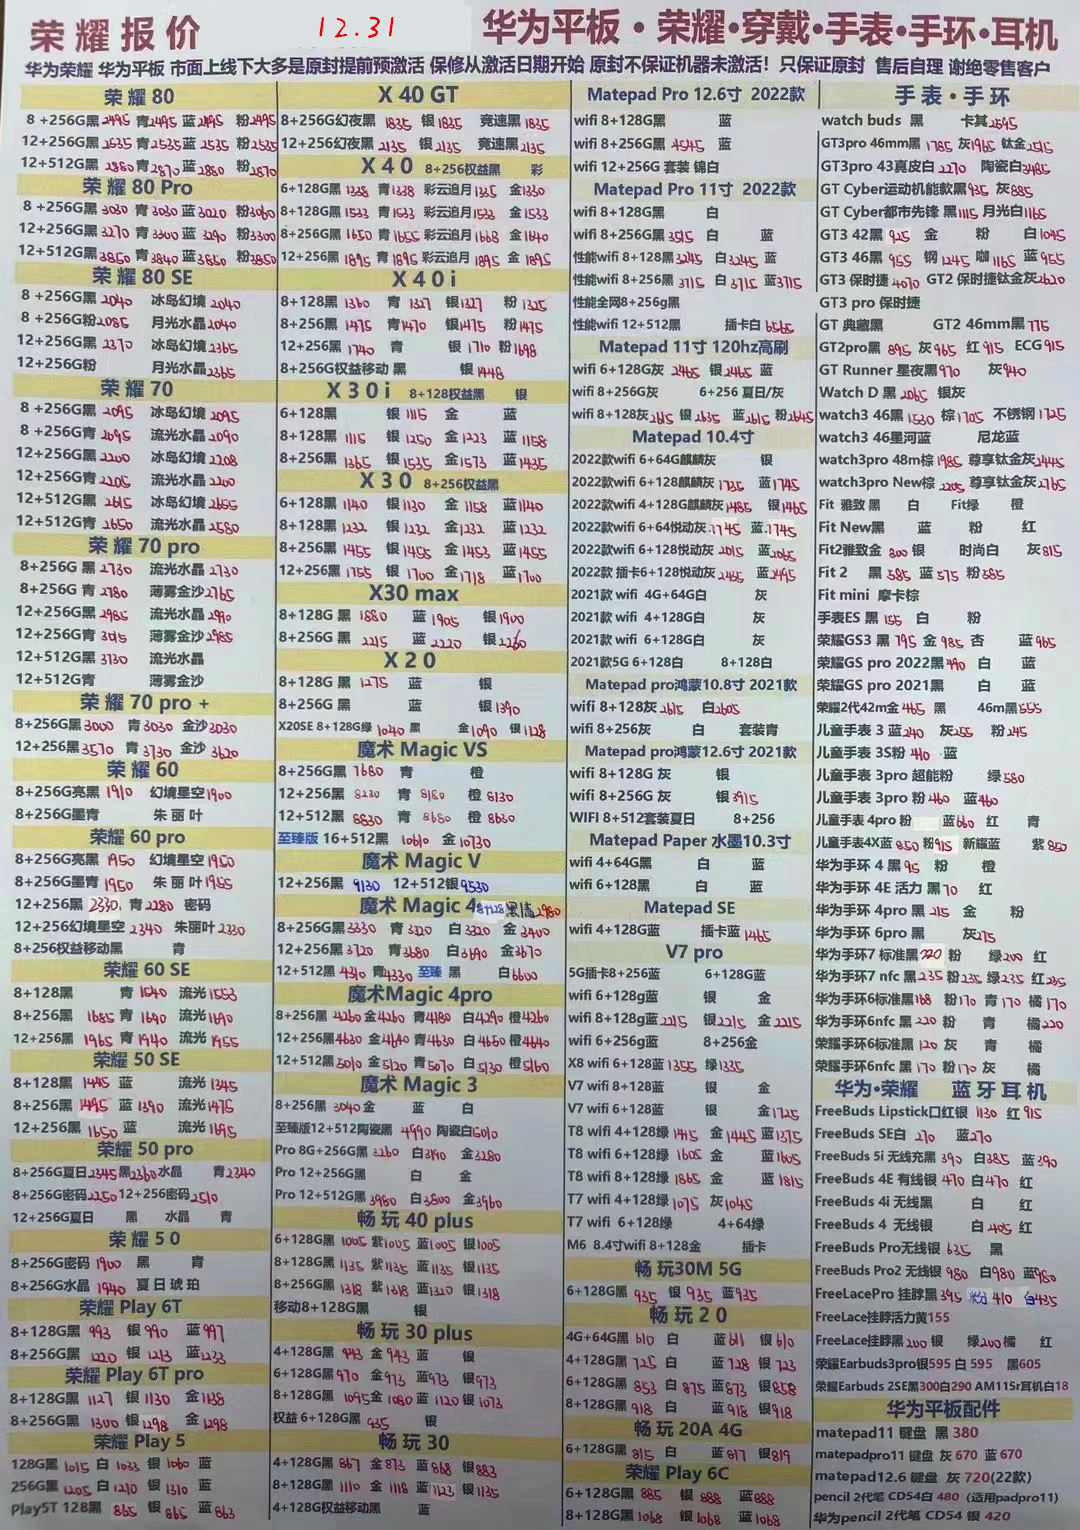 荣耀报价
12.31
华为平板·荣耀·穿戴·手表·手环·耳机
华为荣耀 华为平板 市面上线下大多是原封提前预激活 保修从激活日期开始 原封不保证机器未激活！只保证原封 售后自理 谢绝零售客户
荣耀80
8 +256G黑2495 青2495 蓝2495 粉2495
12+256G黑2535 青2535 蓝2535 粉2535
12+512G黑2880 青2870 蓝2880 粉2870
荣耀80 Pro
8 +256G黑3030 青3030 蓝3020 粉3060
12+256G黑3270 青3300 蓝3290 粉3300
12+512G黑3850 青3840 蓝3850 粉3850
荣耀80 SE
8 +256G黑2040 冰岛幻境2040
8 +256G粉2085 月光水晶2040
12+256G黑2370 冰岛幻境2365
12+256G粉 月光水晶2365
荣耀70
8 +256G黑2095 冰岛幻境2095
8 +256G青2095 流光水晶2090
12+256G黑2200 冰岛幻境2208
12+256G青2205 流光水晶2200
12+512G黑2615 冰岛幻境2655
12+512G青2650 流光水晶2580
荣耀70 pro
8+256G 黑2730 流光水晶2730
8+256G 青2780 薄雾金沙2765
12+256G黑2985 流光水晶2990
12+256G青3015 薄雾金沙2985
12+512G黑3130 流光水晶
12+512G青 薄雾金沙
荣耀70 pro +
8+256G黑3000 青3030 金沙3030
12+256黑3570 青3730 金沙3620
荣耀60
8+256G亮黑1910 幻境星空1900
8+256G墨青 朱丽叶
荣耀60 pro
8+256G亮黑1950 幻境星空1950
8+256G墨青1950 朱丽叶1955
12+256黑2330 青2280 密码
12+256幻境星空2340 朱丽叶2330
8+256权益移动黑 青
荣耀60 SE
8+128黑 青1540 流光1553
8+256黑1685 青1690 流光1690
12+256黑1965 青1940 流光1955
荣耀50 SE
8+128黑1445 蓝 流光1345
8+256黑1495 蓝1390 流光1475
12+256黑1650 蓝 流光1695
荣耀50 pro
8+256G夏日2345 黑2360 水晶 青2340
8+256G密码2250 12+256密码2510
12+256G夏日 黑 水晶 青
荣耀50
8+256G密码1900 黑 青
8+256G水晶1940 夏日琥珀
荣耀 Play 6T
8+128G黑993 银990 蓝997
8+256G黑1220 银1213 蓝1233
荣耀 Play 6T pro
8+128G黑1127 银1130 金1138
8+256G黑1300 银1298 金1298
荣耀 Play 5
128G黑1015 白1033 银1060 蓝
256G黑1205 白1210 银1310 蓝
Play5T 128黑865 银865 蓝863
X 40 GT
8+256G幻夜黑1835 银1835 竞速黑1835
12+256幻夜黑2135 银2135 竞速黑2135
X40 8+256权益黑 彩
6+128G黑1328 青1338 彩云追月1365 金1330
8+128G黑1533 青1533 彩云追月1533 金1533
8+256G黑1650 青1655 彩云追月1668 金1640
12+256黑1895 青1895 彩云追月1895 金1895
X40i
8+128黑1360 青1327 银1327 粉1325
8+256黑1475 青1470 银1475 粉1475
12+256黑1740 青 银1710 粉1698
8+256G权益移动 黑 银1448
X30i 8+128权益黑 银
6+128黑 银1115 金 蓝
8+128黑1115 银1250 金1223 蓝1158
8+256黑1365 银1535 金1573 蓝1435
X30 8+256G权益黑
6+128黑1140 银1130 金1158 蓝1140
8+128黑1232 银1232 金1232 蓝1232
8+256黑1455 银1455 金1453 蓝1455
12+256黑1755 银1700 金1718 蓝1700
X30 max
8+128G 黑1880 蓝1905 银1900
8+256G 黑2215 蓝2220 银2260
X20
8+128G 黑1275 蓝 银
8+256G 黑 蓝 银1390
X20SE 8+128G绿1040 黑 金1090 银1128
魔术 Magic VS
8+256G黑7680 青 橙
12+256黑8230 青8180 橙8130
12+512黑8830 青8680 橙8630
至臻版 16+512黑10610 金10730
魔术 Magic V
12+256黑9130 12+512银9530
魔术 Magic 4 8+128黑值2980
8+256G黑3330 青3320 白3320 金3400
12+256黑3720 青3680 白3690 金3670
12+512黑4310 青4330 至臻 黑 白6600
魔术Magic 4pro
8+256黑4260 金4260 青4180 白4290 橙4260
12+256黑4630 金4640 青4630 白4650 橙4640
12+512黑5010 金5120 青5070 白5130 橙5160
魔术 Magic 3
8+256黑3040 金 蓝 白
至臻版12+512陶瓷黑4990 陶瓷白5010
Pro 8G+256G黑3260 白3190 金3280
Pro 12+256G黑 白 金
Pro 12+512G黑3980 白3800 金3960
畅玩40 plus
6+128G黑1005 紫1005 蓝1005 银1005
8+128G黑1135 紫1135 蓝1135 银1135
8+256G黑1318 紫1318 蓝1320 银1318
移动8+128G黑 银
畅玩30 plus
4+128G黑943 金943 蓝 银
6+128G黑970 金973 蓝973 银973
8+128G黑1095 金1080 蓝1120 银1073
权益 6+128G黑935 银
畅玩30
4+128G黑867 金873 蓝868 银883
8+128G黑1110 金1118 蓝1123 银1135
4+128G权益移动黑 蓝
Matepad Pro 12.6寸 2022款
wifi 8+128G黑 蓝
wifi 8+256G黑4545 蓝
wifi 12+256G 套装 锦白
Matepad Pro 11寸 2022款
wifi 8+128G黑 白
wifi 8+256G黑3515 白 蓝
性能wifi 8+128黑3245 白3245 蓝
性能wifi 8+256黑3715 白3715 蓝3715
性能全网8+256g黑
性能wifi 12+512黑 插卡白6565
Matepad 11寸 120hz高刷
wifi 6+128G灰2465 银2465 蓝
wifi 8+256G灰 6+256 夏日/灰
wifi 8+128灰2615 银2635 蓝2615 粉2645
Matepad 10.4寸
2022款wifi 6+64G麒麟灰 银
2022款wifi 6+128麒麟灰1735 蓝1745
2022款wifi 4+128G麒麟灰1485 银1465
2022款wifi 6+64悦动灰1745 蓝1745
2022款wifi 6+128悦动灰2015 蓝2065
2022款 插卡6+128悦动灰2455 蓝2495
2021款 wifi 4G+64G白 灰
2021款 wifi 4+128G白 灰
2021款 wifi 6+128G白 灰
2021款5G 6+128白 8+128白
Matepad pro鸿蒙10.8寸 2021款
wifi 8+128灰2615 白2605
wifi 8+256灰 白 套装青
Matepad pro鸿蒙12.6寸 2021款
wifi 8+128G 灰 银
wifi 8+256G 灰 银3915
WIFI 8+512套装夏日 8+256
Matepad Paper 水墨10.3寸
wifi 4+64G黑 白 蓝
wifi 6+128黑 白 蓝
Matepad SE
wifi 4+128G蓝 插卡蓝1465
V7 pro
5G插卡8+256蓝 6+128G蓝
wifi 6+128g蓝 银 金
wifi 8+128g蓝2215 银2215 金2215
wifi 6+256g蓝 8+256金
X8 wifi 6+128蓝1355 绿1335
V7 wifi 8+128蓝 银 金
V7 wifi 6+128蓝 银 金1725
T8 wifi 4+128绿1415 金1445 蓝1375
T8 wifi 6+128绿1605 金 蓝1605
T8 wifi 8+128绿1865 金 蓝1815
T7 wifi 4+128绿1075 灰1045
T7 wifi 6+128绿 4+64绿
M6 8.4寸wifi 8+128金 插卡
畅玩30M 5G
6+128G黑935 银935 蓝935
畅玩20
4G+64G黑610 白 蓝611 银610
4+128G黑725 白 蓝728 银723
6+128G黑853 白875 蓝873 银858
8+128G黑918 白 蓝918 银918
畅玩20A 4G
6+128G黑815 白 蓝817 银819
荣耀 Play 6C
6+128G黑885 银888 蓝888
8+128G黑1068 银1068 蓝1068
手表·手环
watch buds 黑 卡其2595
GT3pro 46mm黑1785 灰1965 钛金2515
GT3pro 43真皮白2270 陶瓷白3485
GT Cyber运动机能款黑935 灰885
GT Cyber都市先锋 黑1115 月光白1165
GT3 42黑925 金 粉 白1045
GT3 46黑955 钢1245 咖1165 蓝955
GT3 保时捷4070 GT2 保时捷钛金灰2620
GT3 pro 保时捷
GT 典藏黑 GT2 46mm黑775
GT2pro黑895 灰965 红915 ECG915
GT Runner 星夜黑970 灰940
Watch D 黑2065 银灰
watch3 46黑1530 棕1705 不锈钢1725
watch3 46星河蓝 尼龙蓝
watch3pro 48m棕1985 尊享钛金灰2445
watch3pro New棕2205 尊享钛金灰2765
Fit 雅致 黑 白 Fit绿 橙
Fit New黑 蓝 粉 红
Fit2雅致金800 银 时尚白 灰815
Fit 2 黑585 蓝575 粉585
Fit mini 摩卡棕
手表ES 黑155 白 粉
荣耀GS3 黑795 金985 杏 蓝965
荣耀GS pro 2022黑490 白 蓝
荣耀GS pro 2021黑 白 蓝
荣耀2代42m金465 黑 46m黑555
儿童手表 3 蓝240 灰255 粉245
儿童手表 3S粉440 蓝
儿童手表 3pro 超能粉 绿580
儿童手表 3pro 粉460 蓝460
儿童手表 4pro 粉 蓝660 红 青
儿童手表4X蓝850 粉915 新耀蓝 紫850
华为手环 4 黑95 粉 橙
华为手环 4E 活力 黑70 红
华为手环 4pro 黑215 金 粉
华为手环 6pro 黑 灰275
华为手环7 标准黑220 粉 绿200 红
华为手环7 nfc 黑235 粉235 绿235 红235
华为手环6标准黑168 粉170 青170 橘170
华为手环6nfc 黑220 粉 青 橘220
荣耀手环6标准黑120 灰 青 橘
荣耀手环6nfc 黑170 粉170 灰 橘
华为·荣耀 蓝牙耳机
FreeBuds Lipstick口红银1130 红915
FreeBuds SE白270 蓝270
FreeBuds 5i 无线充黑390 白385 蓝390
FreeBuds 4E 有线银470 白470 红
FreeBuds 4i 无线黑 白 红
FreeBuds 4 无线银 白405 红
FreeBuds Pro无线银635 黑
FreeBuds Pro2 无线银980 白980 蓝980
FreeLacePro 挂脖黑395 粉410 白435
FreeLace挂脖活力黄155
FreeLace挂脖黑200 银 绿200 橘 红
荣耀Earbuds3pro银595 白 595 黑605
荣耀Earbuds 2SE黑300白290 AM115r耳机白18
华为平板配件
matepad11 键盘 黑 380
matepadpro11 键盘 灰 670 蓝 670
matepad12.6 键盘 灰 720(22款)
pencil 2代笔 CD54白 480 (适用padpro11)
华为pencil 2代笔 CD54 银 420